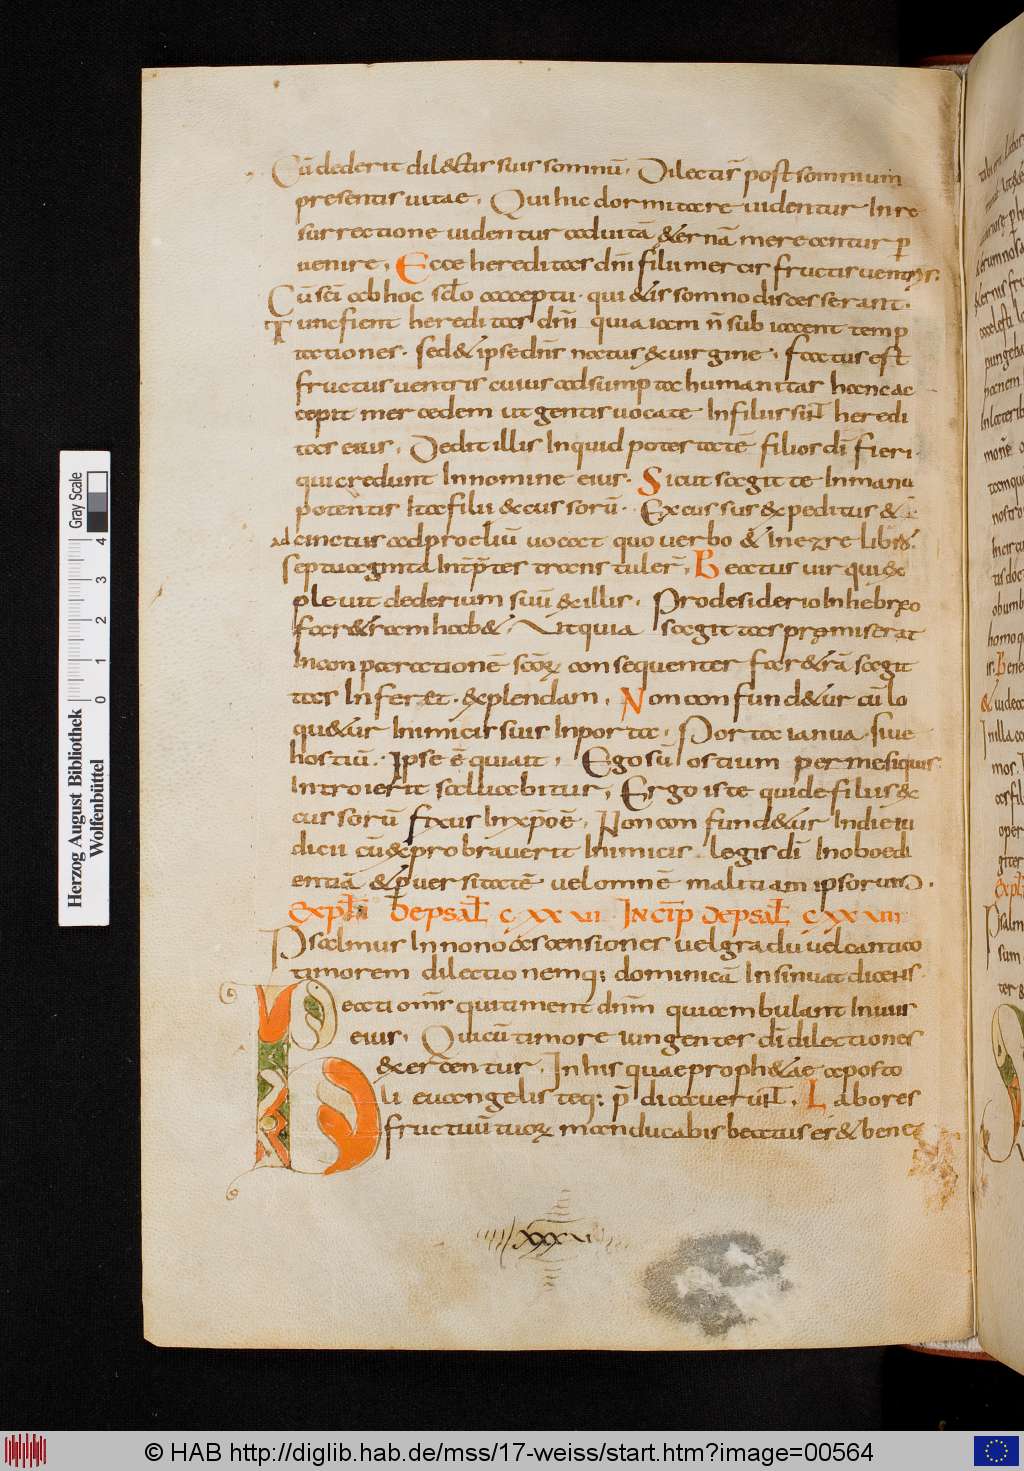 Cū dederit dil&is suis somnū. Dilectis post somnium
presentis uitae. Qui hic dormitare uidentur In re
surrectione uidentur ad uitā &ernā mereantur p
uenire. Ecce hereditas dni filii merces fructus uentris.
Cū sci ad hoc scło accepta. qui & is somno discesserant.
Tunc fient hereditas dni quia iam n̄ subiacent temp
tationes. sed & ipse dns natus & uirgine. factus est
fructus uentris cuius adsumpta humanitas hanc ac
cepit mercedem ut gentis uocate In filiis sint heredi
tas eius. Dedit illis Inquid potestatē filios di fieri
qui credunt In nomine eius. Sicut sagitte In manu
potentis Ita filii &cussorū. Excussus &xpeditus &
ad cinctus ad proeliū uocat quo uerbo & In ezre libris
septuaginta Intp̄ter transtuler̄. Beatus uir qui &
pleuit dederium suū & illis. Pro desiderio In hebreo
far&ram hab&. Ut quia sagittas premiserat
In conparationē scōꝝ consequenter far&rā sagit
tas Inferret. &plendam. Non confund&ur cū lo
qu&ur Inimicis suis In porta. Porta ianua. siue
hostiū. Ipse ē qui ait. Ego sū ostium per me siquis
Introierit saluabitur. Ergo iste qui de filiis &
cussorū fixus In xpoē. Non confund&ur In die iu
dicii cū &probrauerit Inimicis legis di Inoboedi
entiā & puersitatē uel omnē malitiam ipsorum.
Expł depsał cxxvii Incip depsał cxxviii
Psalmus In nono ascensiones uel gradu uel cantico
timorem dilectionemq; dominicā Insinuat dicens.
Beati omīs qui timent dnm qui ambulant In uiis
eius. Qui cū timore iungenter di dilectiones
&ercentur. In his quae proph&ae aposto
li euangelisteq; p̄dicauerunt. Labores
fructuū tuoꝝ manducabis beatus es & bene
xxxvi
Herzog August Bibliothek
Wolfenbüttel
0 1 2 3 4
Gray Scale
© HAB http://diglib.hab.de/mss/17-weiss/start.htm?image=00564